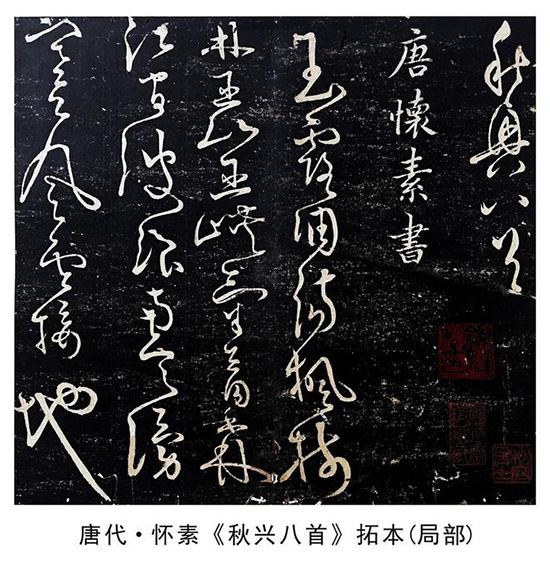 秋興八首
唐懷素書
玉露凋傷楓樹
林巫山巫峽氣蕭森
江間波浪兼天湧
塞上風雲接地
唐代·怀素《秋兴八首》拓本(局部)